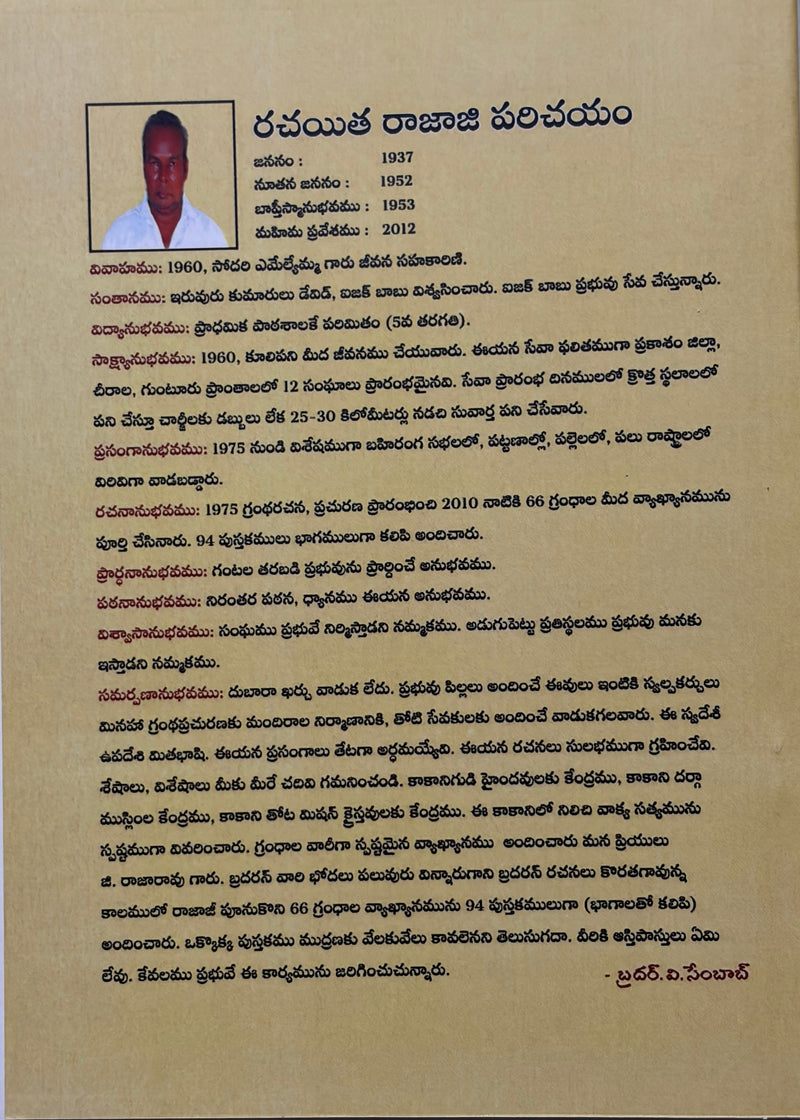 రచయిత రాజాజి పరిచయం
జననం : 1937
నూతన జననం : 1952
బాప్తీస్మానుభవము : 1953
మహిమ ప్రవేశము : 2012
వివాహము: 1960, సోదరి ఎమేల్యేమ్మ గారు జీవన సహకారిణి.
సంతానము: ఇరువురు కుమారులు డేవిడ్, ఐజక్ బాబు విశ్వసించారు. ఐజక్ బాబు ప్రభువు సేవ చేస్తున్నారు.
విద్యానుభవము: ప్రాధమిక పాఠశాలకే పరిమితం (5వ తరగతి).
సాక్ష్యానుభవము: 1960, కూలిపని మీద జీవనము చేయువారు. ఈయన సేవా ఫలితముగా ప్రకాశం జిల్లా,
చీరాల, గుంటూరు ప్రాంతాలలో 12 సంఘాలు ప్రారంభమైనవి. సేవా ప్రారంభ దినములలో క్రొత్త స్థలాలలో
పని చేస్తూ చార్జీలకు డబ్బులు లేక 25-30 కిలోమీటర్లు నడచి సువార్త పని చేసేవారు.
ప్రసంగానుభవము: 1975 నుండి విశేషముగా బహిరంగ సభలలో, పట్టణాల్లో, పల్లెలలో, పలు రాష్ట్రాలలో
విరివిగా వాడబడ్డారు.
రచనానుభవము: 1975 గ్రంథరచన, ప్రచురణ ప్రారంభించి 2010 నాటికి 66 గ్రంధాల మీద వ్యాఖ్యానమును
పూర్తి చేసినారు. 94 పుస్తకములు భాగములుగా కలిపి అందిచారు.
ప్రార్ధనానుభవము: గంటల తరబడి ప్రభువును ప్రార్దించే అనుభవము.
పఠనానుభవము: నిరంతర పఠన, ధ్యానము ఈయన అనుభవము.
విశ్వాసానుభవము: సంఘము ప్రభువే నిర్మిస్తాడని నమ్మకము. అడుగుపెట్టు ప్రతిస్థలము ప్రభువు మనకు
ఇస్తాడని నమ్మకము.
సమర్పణానుభవము: దుబారా ఖర్చు వాడుక లేదు. ప్రభువు పిల్లలు అందించే ఈవులు ఇంటికి స్వల్పకర్చులు
మినహా గ్రంథప్రచురణకు మందిరాల నిర్మాణానికి, తోటి సేవకులకు అందించే వాడుకగలవారు. ఈ స్వదేశీ
ఉపదేశి మితభాషి. ఈయన ప్రసంగాలు తేటగా అర్ధమయ్యేవి. ఈయన రచనలు సులభముగా గ్రహించేవి.
శేషాలు, విశేషాలు మీకు మీరే చదివి గమనించండి. కాకానిగుడి హైందవులకు కేంద్రము, కాకాని దర్గా
ముస్లింల కేంద్రము, కాకాని తోట మిషన్ క్రైస్తవులకు కేంద్రము. ఈ కాకానిలో నిలిచి వాక్య సత్యమును
స్పష్టముగా వివరించారు. గ్రంధాల వారీగా స్పష్టమైన వ్యాఖ్యానము అందించారు మన ప్రియులు
జి. రాజారావు గారు. బ్రదరన్ వారి భోదలు పలువురు విన్నారుగాని బ్రదరన్ రచనలు కొరతగావున్న
కాలములో రాజాజీ పూనుకొని 66 గ్రంధాల వ్యాఖ్యానమును 94 పుస్తకములుగా (భాగాలతో కలిపి)
అందించారు. ఒక్కొక్క పుస్తకము ముద్రణకు వేలకువేలు కావలెనని తెలుసుగదా. వీరికి ఆస్తిపాస్తులు ఏమి
లేవు. కేవలము ప్రభువే ఈ కార్యమును జరిగించుచున్నారు.
- బ్రదర్. వి.సేంబాబ్